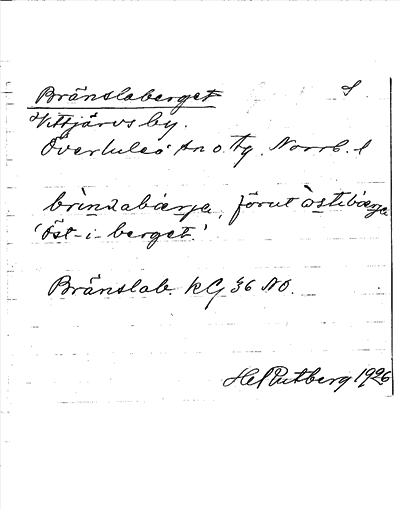 Bränslaberget S
Vittjärvs by.
Överluleå sn o. tg. Norrb. l
brìnslabærja, förut àstibærja
'öst-i-berget.'
Bränslab. kG 36 NO.
Hel Rutberg 1926